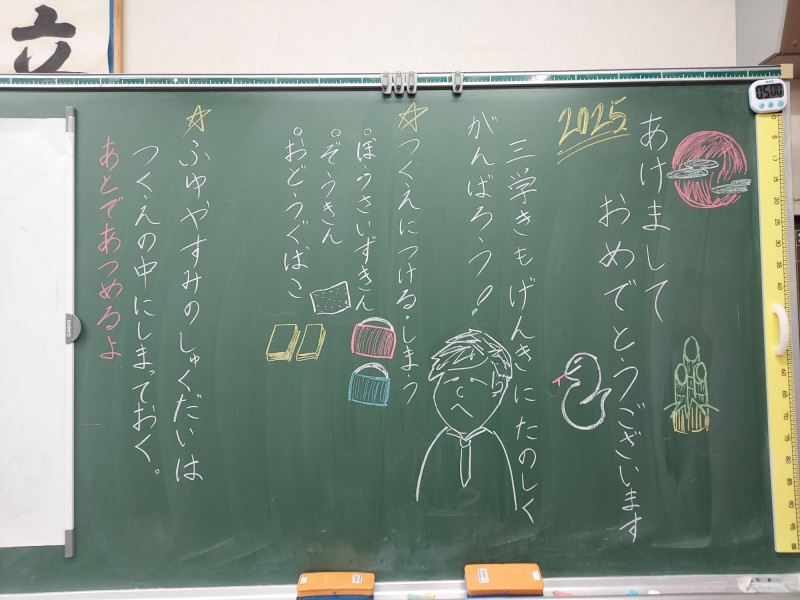 あけまして
おめでとうございます
2025
三学きもげんきにたのしく
がんばろう!
☆つくえにつける・しまう
。ぼうさいずきん
。ぞうきん
。おどうぐばこ
☆ふゆやすみのしゅくだいは
つくえの中にしまっておく。
あとであつめるよ
立